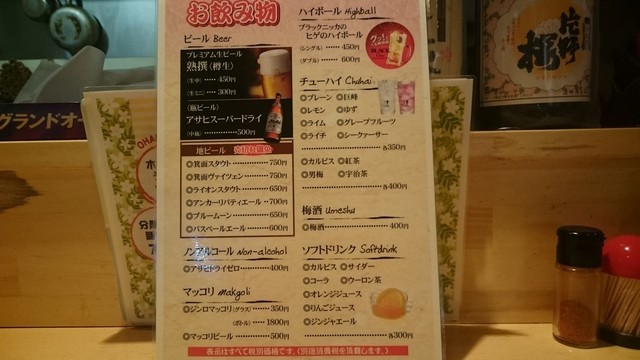 お飲み物
ビール Beer
プレミアム生ビール
熟撰(樽生)
(生中)‥‥‥450円
(生ミニ)‥‥300円
(瓶ビール)
アサヒスーパードライ
(中瓶)‥‥‥‥‥500円
地ビール
◎箕面スタウト‥‥‥750円
◎箕面ヴァイツェン‥‥750円
◎ライオンスタウト‥‥650円
◎アンカーリバティエール‥700円
◎ブルームーン‥‥‥650円
◎バスペールエール‥‥600円
ノンアルコール Non-alcohol
◎アサヒドライゼロ‥‥‥400円
マッコリ Makgoli
◎ジンロマッコリ(グラス)‥‥350円
(ボトル)‥‥1800円
◎マッコリビール‥‥‥500円
ハイボール Highball
ブラックニッカの
ヒゲのハイボール
(シングル)‥‥450円
(ダブル)‥‥‥600円
チューハイ Chuhai
◎プレーン ◎巨峰
◎レモン ◎ゆず
◎ライム ◎グレープフルーツ
◎ライチ ◎シークァーサー
各350円
◎カルピス ◎紅茶
◎男梅 ◎宇治茶
各400円
梅酒 Umeshu
◎梅酒‥‥‥‥‥‥400円
ソフトドリンク Softdrink
◎カルピス ◎サイダー
◎コーラ ◎ウーロン茶
◎オレンジジュース
◎りんごジュース
◎ジンジャエール
各300円
表示はすべて税別価格です。(別途消費税を頂戴します。)
グランドオー
片野
桜